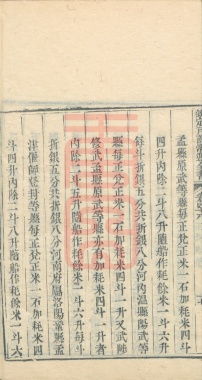 孟縣原武等縣每正兌正米一石加耗米
四斗一升內除二斗八升隨船作耗餘米一斗三升
每斗折銀五分共折銀八分河內溫縣陽武等
縣每正兌正米一石加耗米四斗一升又武陟
修武孟縣原武等縣亦有加耗米四斗一升者
內除二斗五升隨船作耗餘米一斗六升每斗
折銀五分共折銀八分河南府屬洛陽鞏縣孟
津偃師登封等縣每正兌正米一石加耗米四
斗四升內除二斗八升隨船作耗餘米一斗六